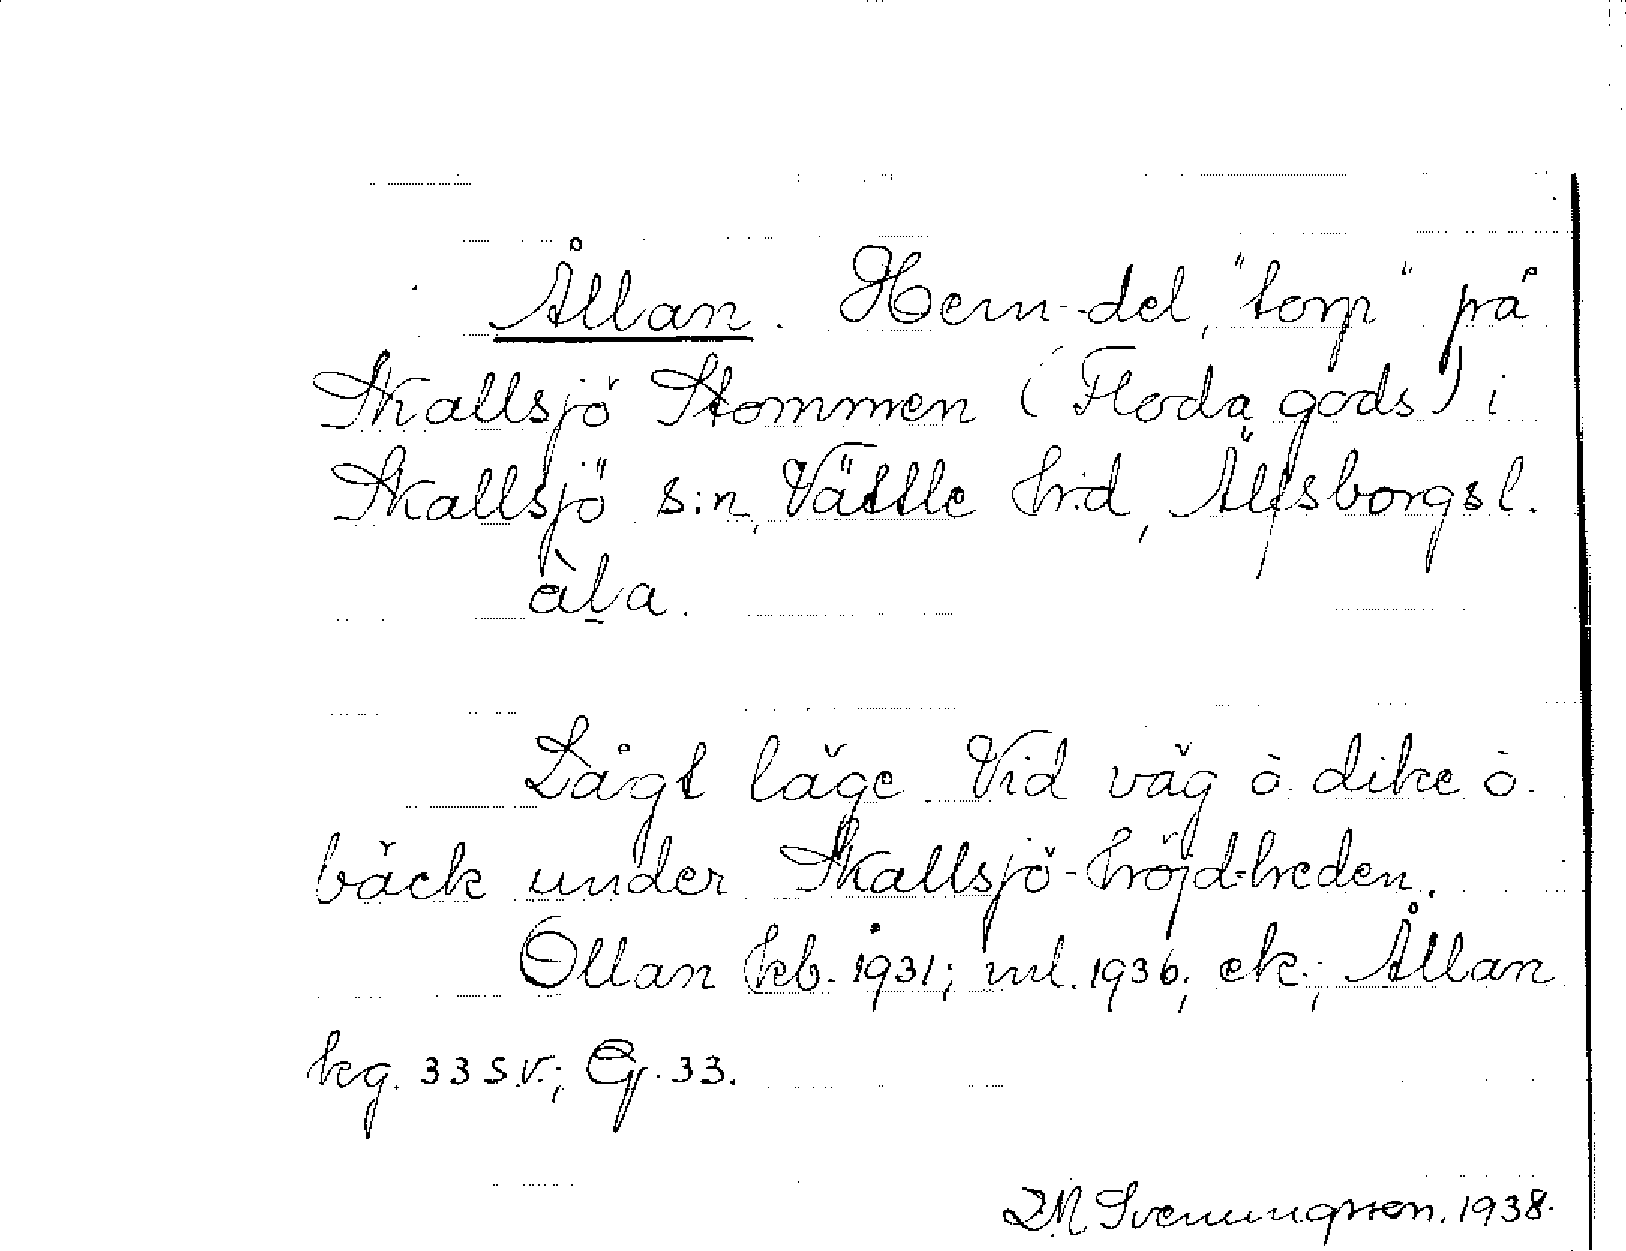 Ållan. Hem-del, "torp" på
Skallsjö Stommen (Floda gods) i
Skallsjö s:n, Vättle hrd, Älfsborgs l.
àḷa.
Lågt läge Vid väg ò dike ò.
bäck under Skallsjö-höjd-heden.
Ollan kb. 1931; ml. 1936; ek.; Ållan
kg. 33 S.V.; Ej. 33.
Svenungsson. 1938.